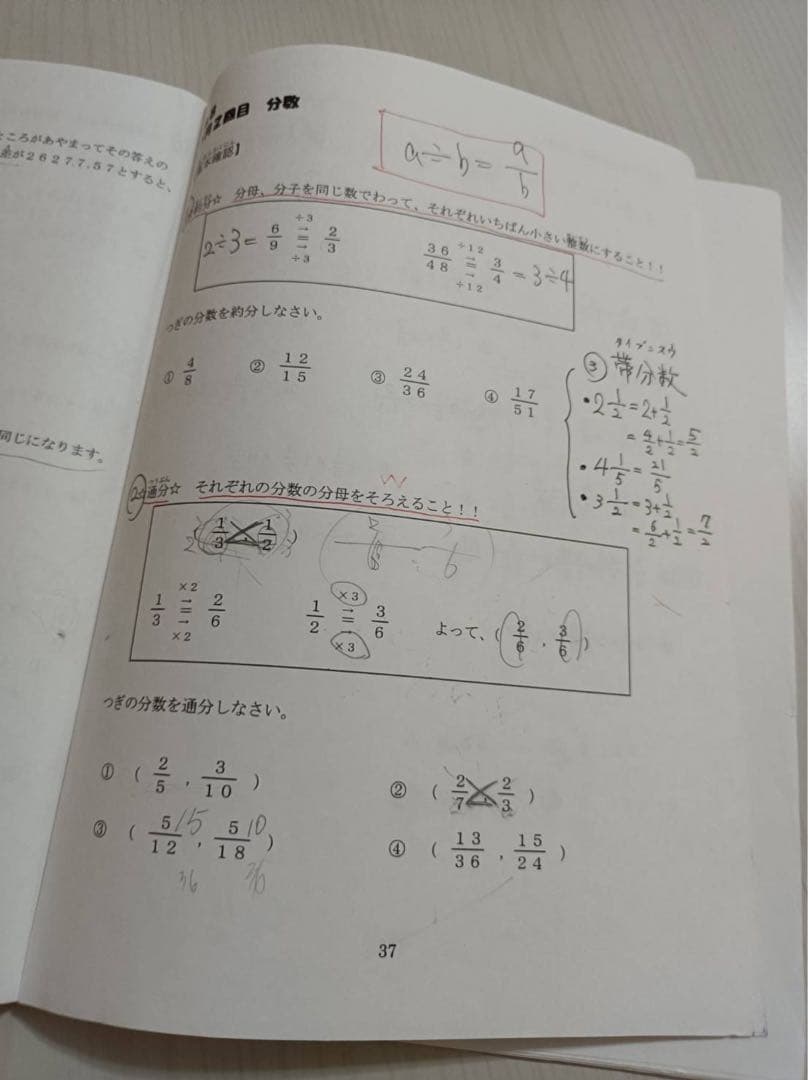 ところがあやまってその答えの
が2627.7,57とすると、
同じになります。
第2回目 分数
a÷b=a/b
【基本確認】
☆約分☆ 分母、分子を同じ数でわって、それぞれいちばん小さい整数にすること!!
2÷3= 6/9 ÷3 → = → ÷3 2/3
36/48 ÷12 → = → ÷12 3/4 =3÷4
つぎの分数を約分しなさい。
① 4/8
② 12/15
③ 24/36
④ 17/51
タイブンスウ
③ 帯分数
・2 1/2=2+1/2
=4/2+1/2=5/2
・4 1/5=21/5
・3 1/2=3+1/2
=6/2+1/2=7/2
2☆通分☆ それぞれの分数の分母をそろえること!!
(1/3 , 1/2)
1/3 ×2 → = → ×2 2/6
1/2 ×3 → = → ×3 3/6
よって、(2/6 , 3/6)
つぎの分数を通分しなさい。
① (2/5 , 3/10)
② (2/7 , 2/3)
③ (5/12 , 5/18)
15 10
36 36
④ (13/36 , 15/24)
37